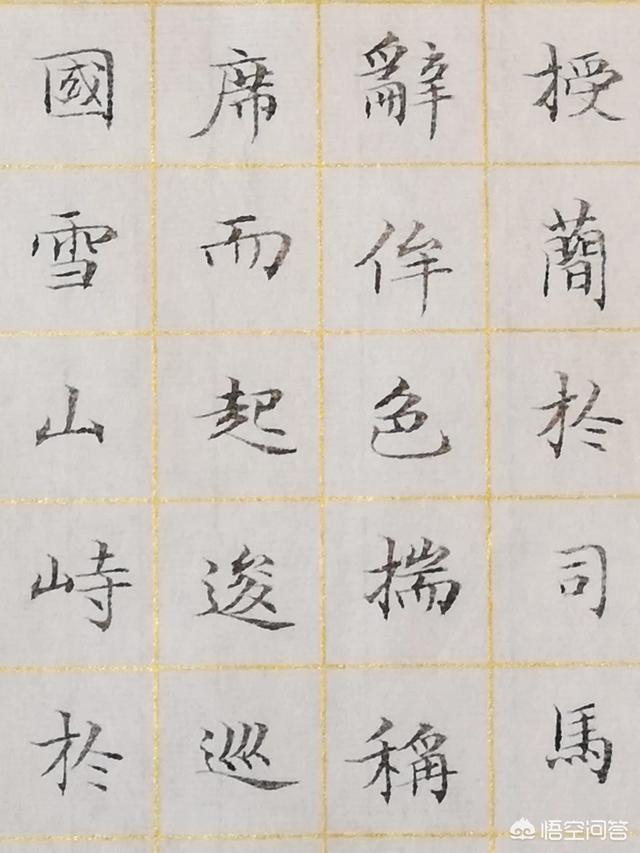 授簡於司馬
辭侔色揣稱
席而起逡巡
國雪山峙於
悟空问答